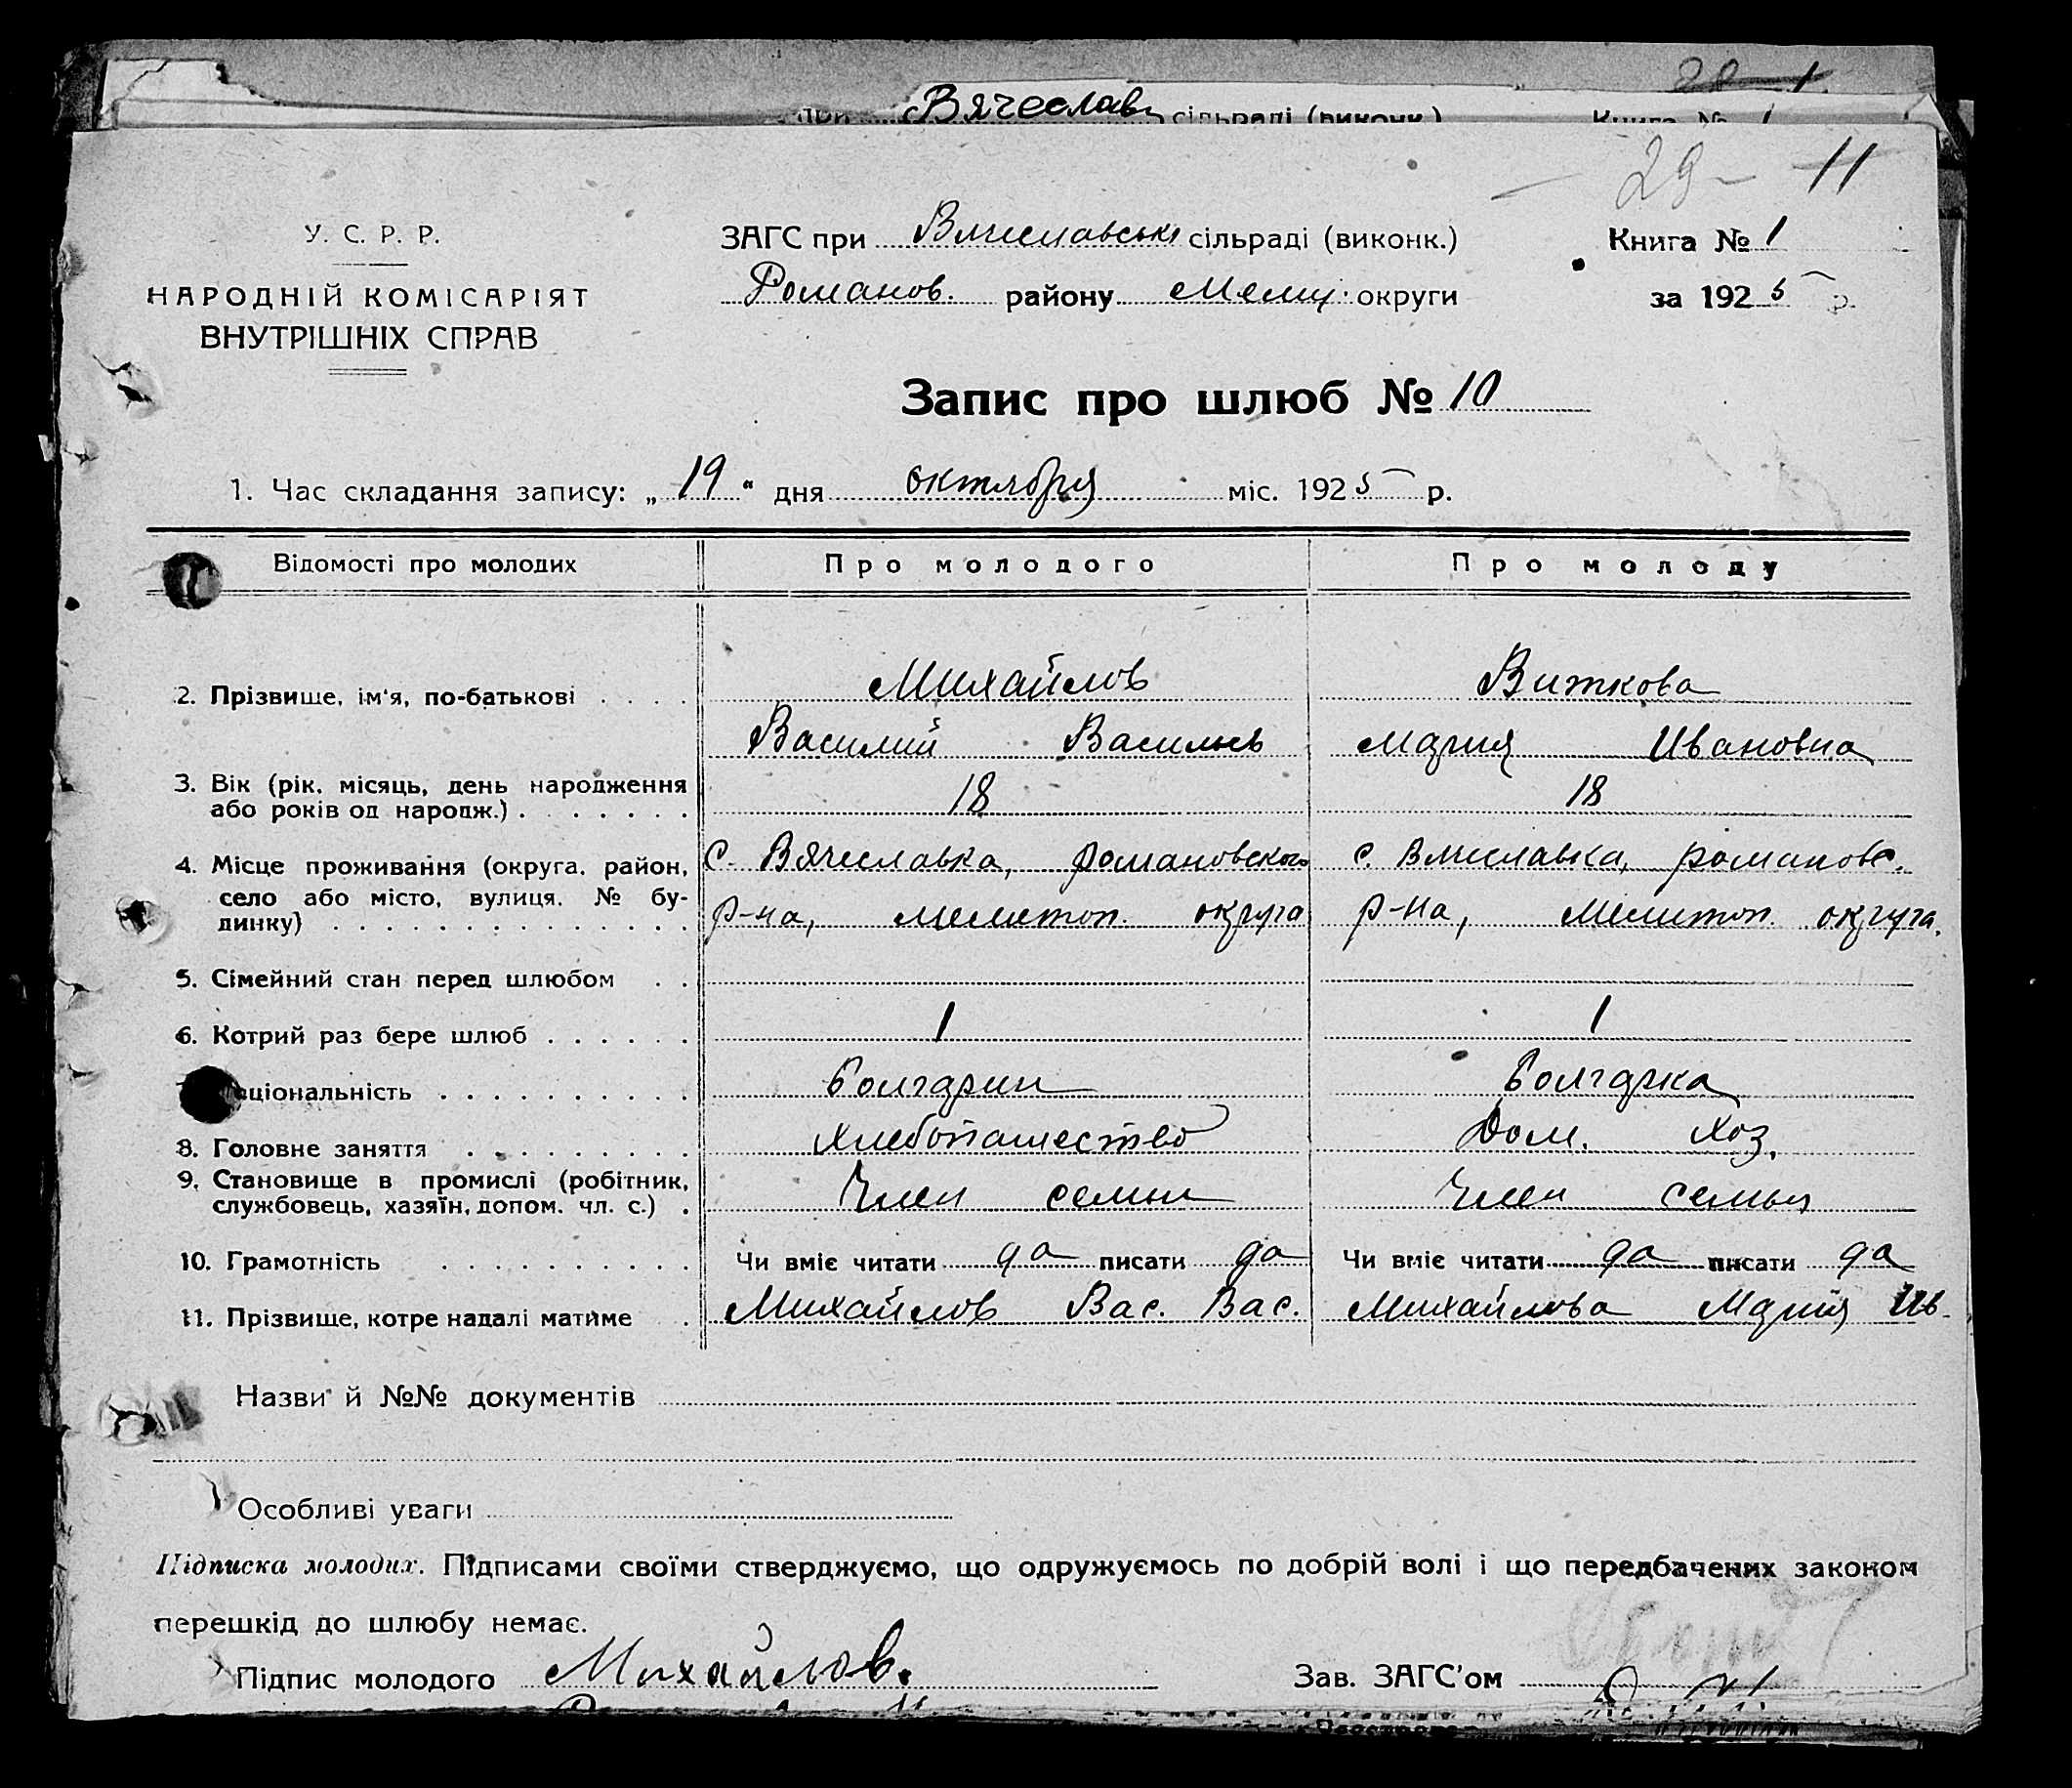 28 1
при Вячеслав сільраді (виконк.) Книга № 1
29 — 11
У. С. Р. Р.
НАРОДНІЙ КОМІСАРІЯТ
ВНУТРІШНІХ СПРАВ
ЗАГС при Вячеславській сільраді (виконк.)
Романов. району Мелит. округи
Книга № 1
за 1925 р.
Запис про шлюб № 10
1. Час складання запису: „19“ дня октября міс. 1925 р.
Відомості про молодих Про молодого Про молоду
2. Прізвище, ім'я, по-батькові . . . . Михайлов Виткова
Василий Васильев Мария Ивановна
3. Вік (рік, місяць, день народження або років од народж.) . . . . . . . 18 18
4. Місце проживання (округа, район, с. Вячеславка, романовского с. Вячеславка, романовс.
село або місто, вулиця, № бу-
динку) . . . . . . . . . . . . . . р-на, мелитоп. округа р-на, Мелитоп. округа.
5. Сімейний стан перед шлюбом . .
6. Котрий раз бере шлюб . . . . . . 1 1
ціональність . . . . . . . . . . Болгарин Болгарка
8. Головне заняття . . . . . . . . . хлебопашество Дом. хоз.
9. Становище в промислі (робітник,
службовець, хазяїн, допом. чл. с.) . Член семьи Член семьи
10. Грамотність . . . . . . . . . . Чи вміє читати да писати да Чи вміє читати да писати да
11. Прізвище, котре надалі матиме . Михайлов Вас. Вас. Михайлова Мария Ив.
Назви й №№ документів
Особливі уваги
Підписка молодих. Підписами своїми стверджуємо, що одружуємось по добрій волі і що передбачених законом
перешкід до шлюбу немає.
Підпис молодого Михайлов. Зав. ЗАГС'ом